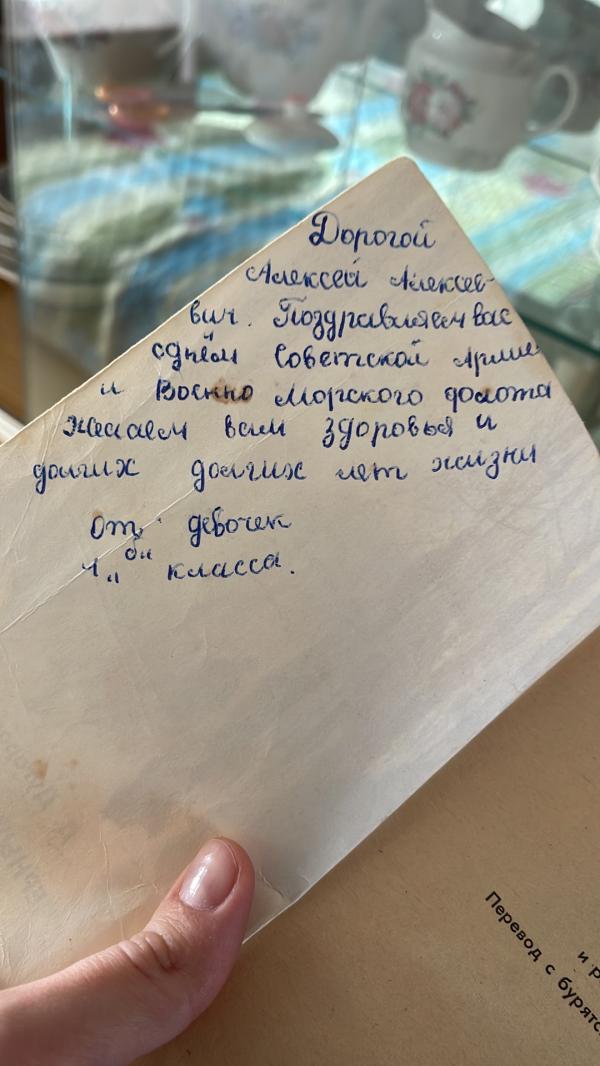 Дорогой
Алексей Алексее-
вич. Поздравляем вас
с днём Советской Армии
и Военно Морского флота
желаем вам здоровья и
долгих долгих лет жизни
от девочек
4 "б" класса.
Перевод с бурятс
и р